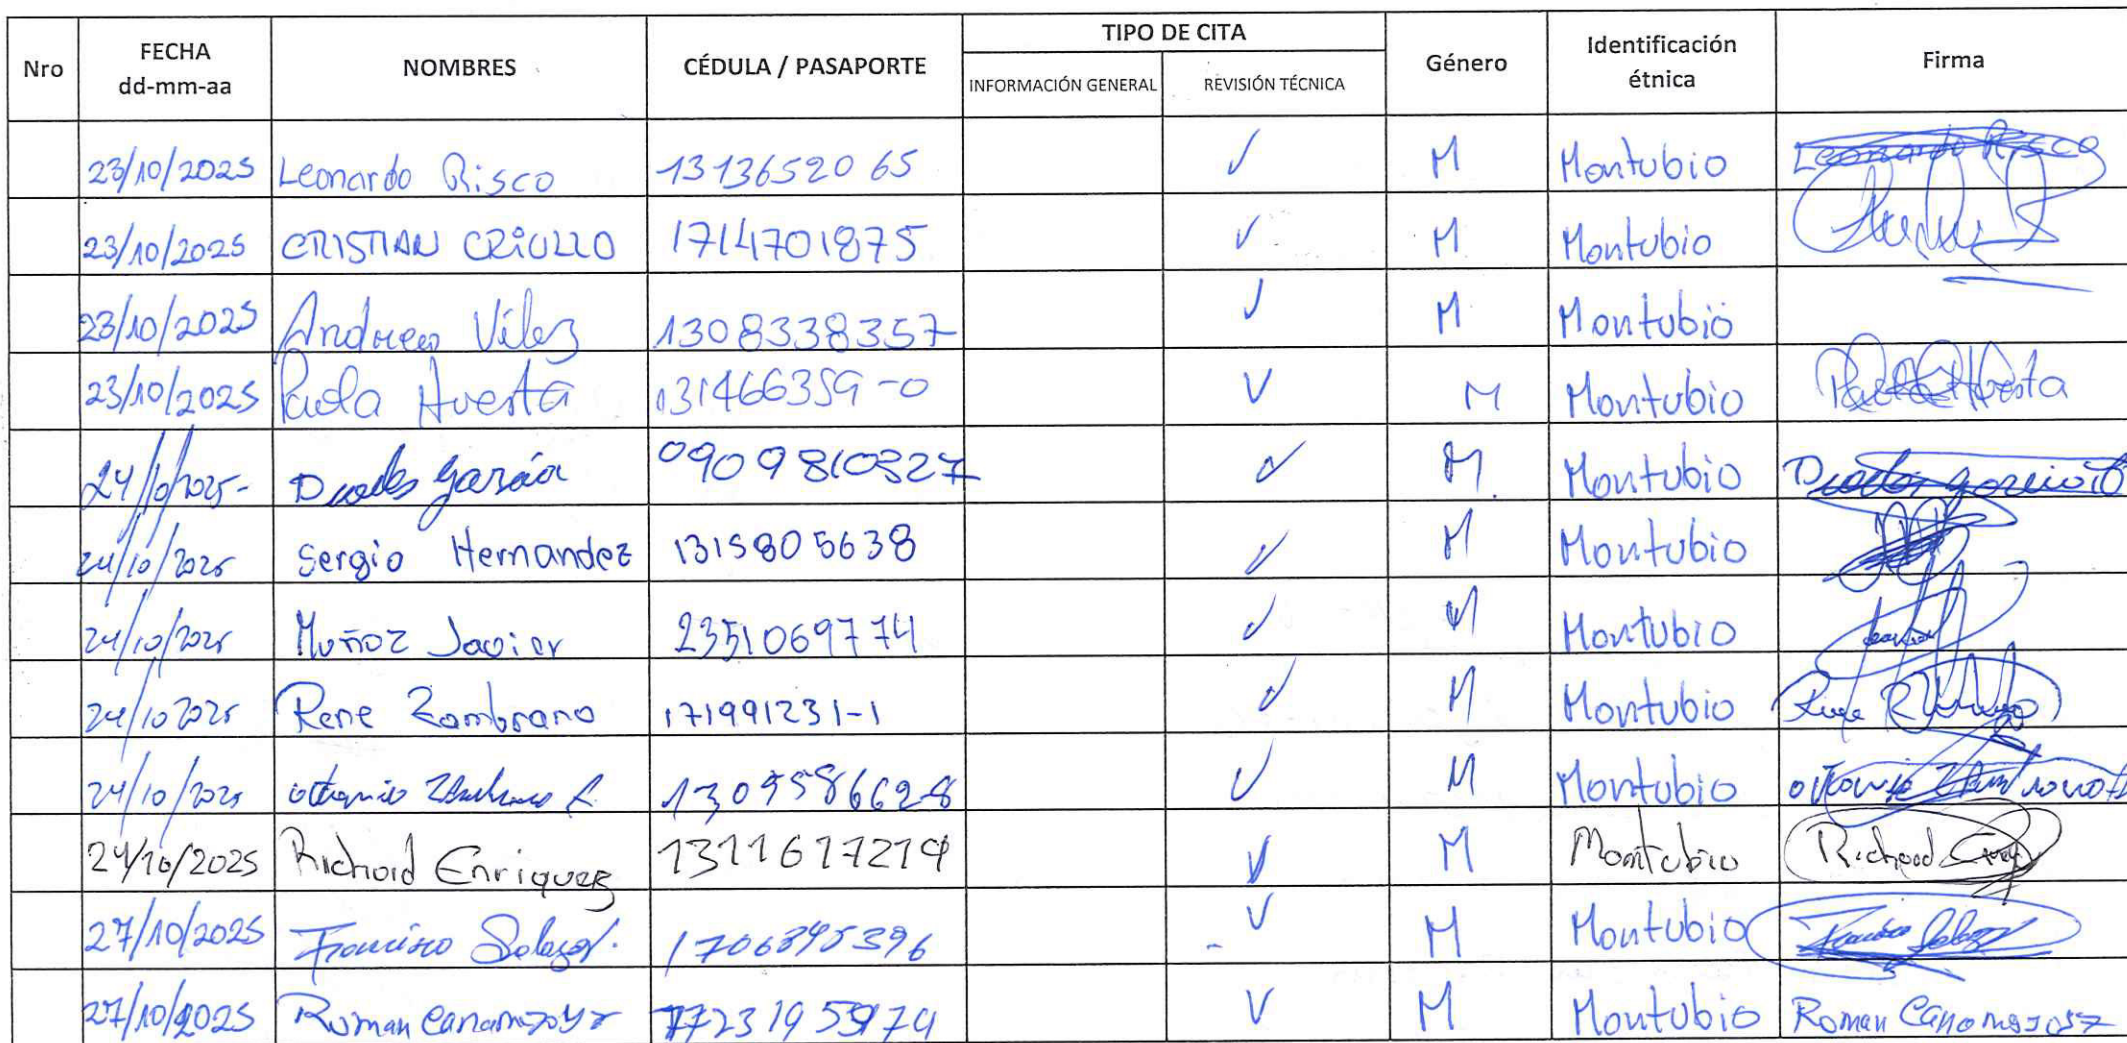 Nro FECHA dd-mm-aa NOMBRES CÉDULA / PASAPORTE TIPO DE CITA INFORMACIÓN GENERAL REVISIÓN TÉCNICA Género Identificación étnica Firma
23/10/2025 Leonardo Risco 1313652065 ✓ M Montubio Leonardo Risco
23/10/2025 CRISTIAN CRIOLLO 1714701875 ✓ M Montubio
23/10/2025 Andrees Vélez 1308338357 ✓ M Montubio
23/10/2025 Paola Huerta 131466359-0 ✓ M Montubio Paola Huerta
24/10/2025- García 0909810327 ✓ M Montubio
24/10/2025 Sergio Hernandez 1315805638 ✓ M Montubio
24/10/2025 Muñoz Javier 2351069774 ✓ M Montubio
24/10/2025 Rene Zambrano 171991231-1 ✓ M Montubio
24/10/2025 1309586628 ✓ M Montubio
24/10/2025 Richard Enriquez 1311617219 ✓ M Montubio Richard
27/10/2025 Francisco Salazar. 1706895396 ✓ M Montubio Francisco Salazar
27/10/2025 Roman ✓ M Montubio Roman